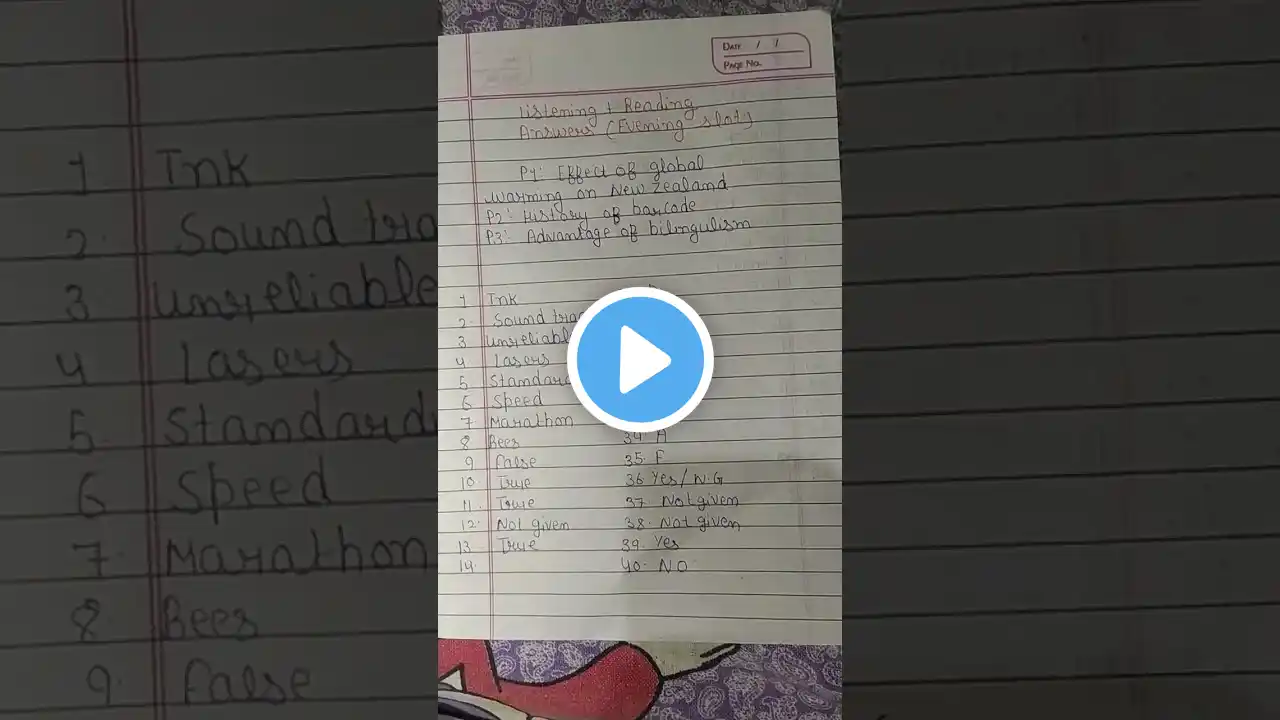 DATE / /
PAGE NO.
Listening + Reading
Answers (Evening slot)
P1: Effect of global
warming on New Zealand
P2: History of barcode
P3: Advantage of bilingulism
1 Ink
2 Sound tra
3 unreliabl
4 Lasers
5 Standard
6 Speed
7 Marathon
8 Bees 34. A
9 False 35. F
10. True 36 Yes/N.G
11. True 37. Not given
12. Not given 38. Not given
13 True 39. Yes
14. 40. NO
1 Ink
2. Sound tra
3 unreliable
4 Lasers
5. Standard
6 Speed
7 Marathon
8. Bees
9. False